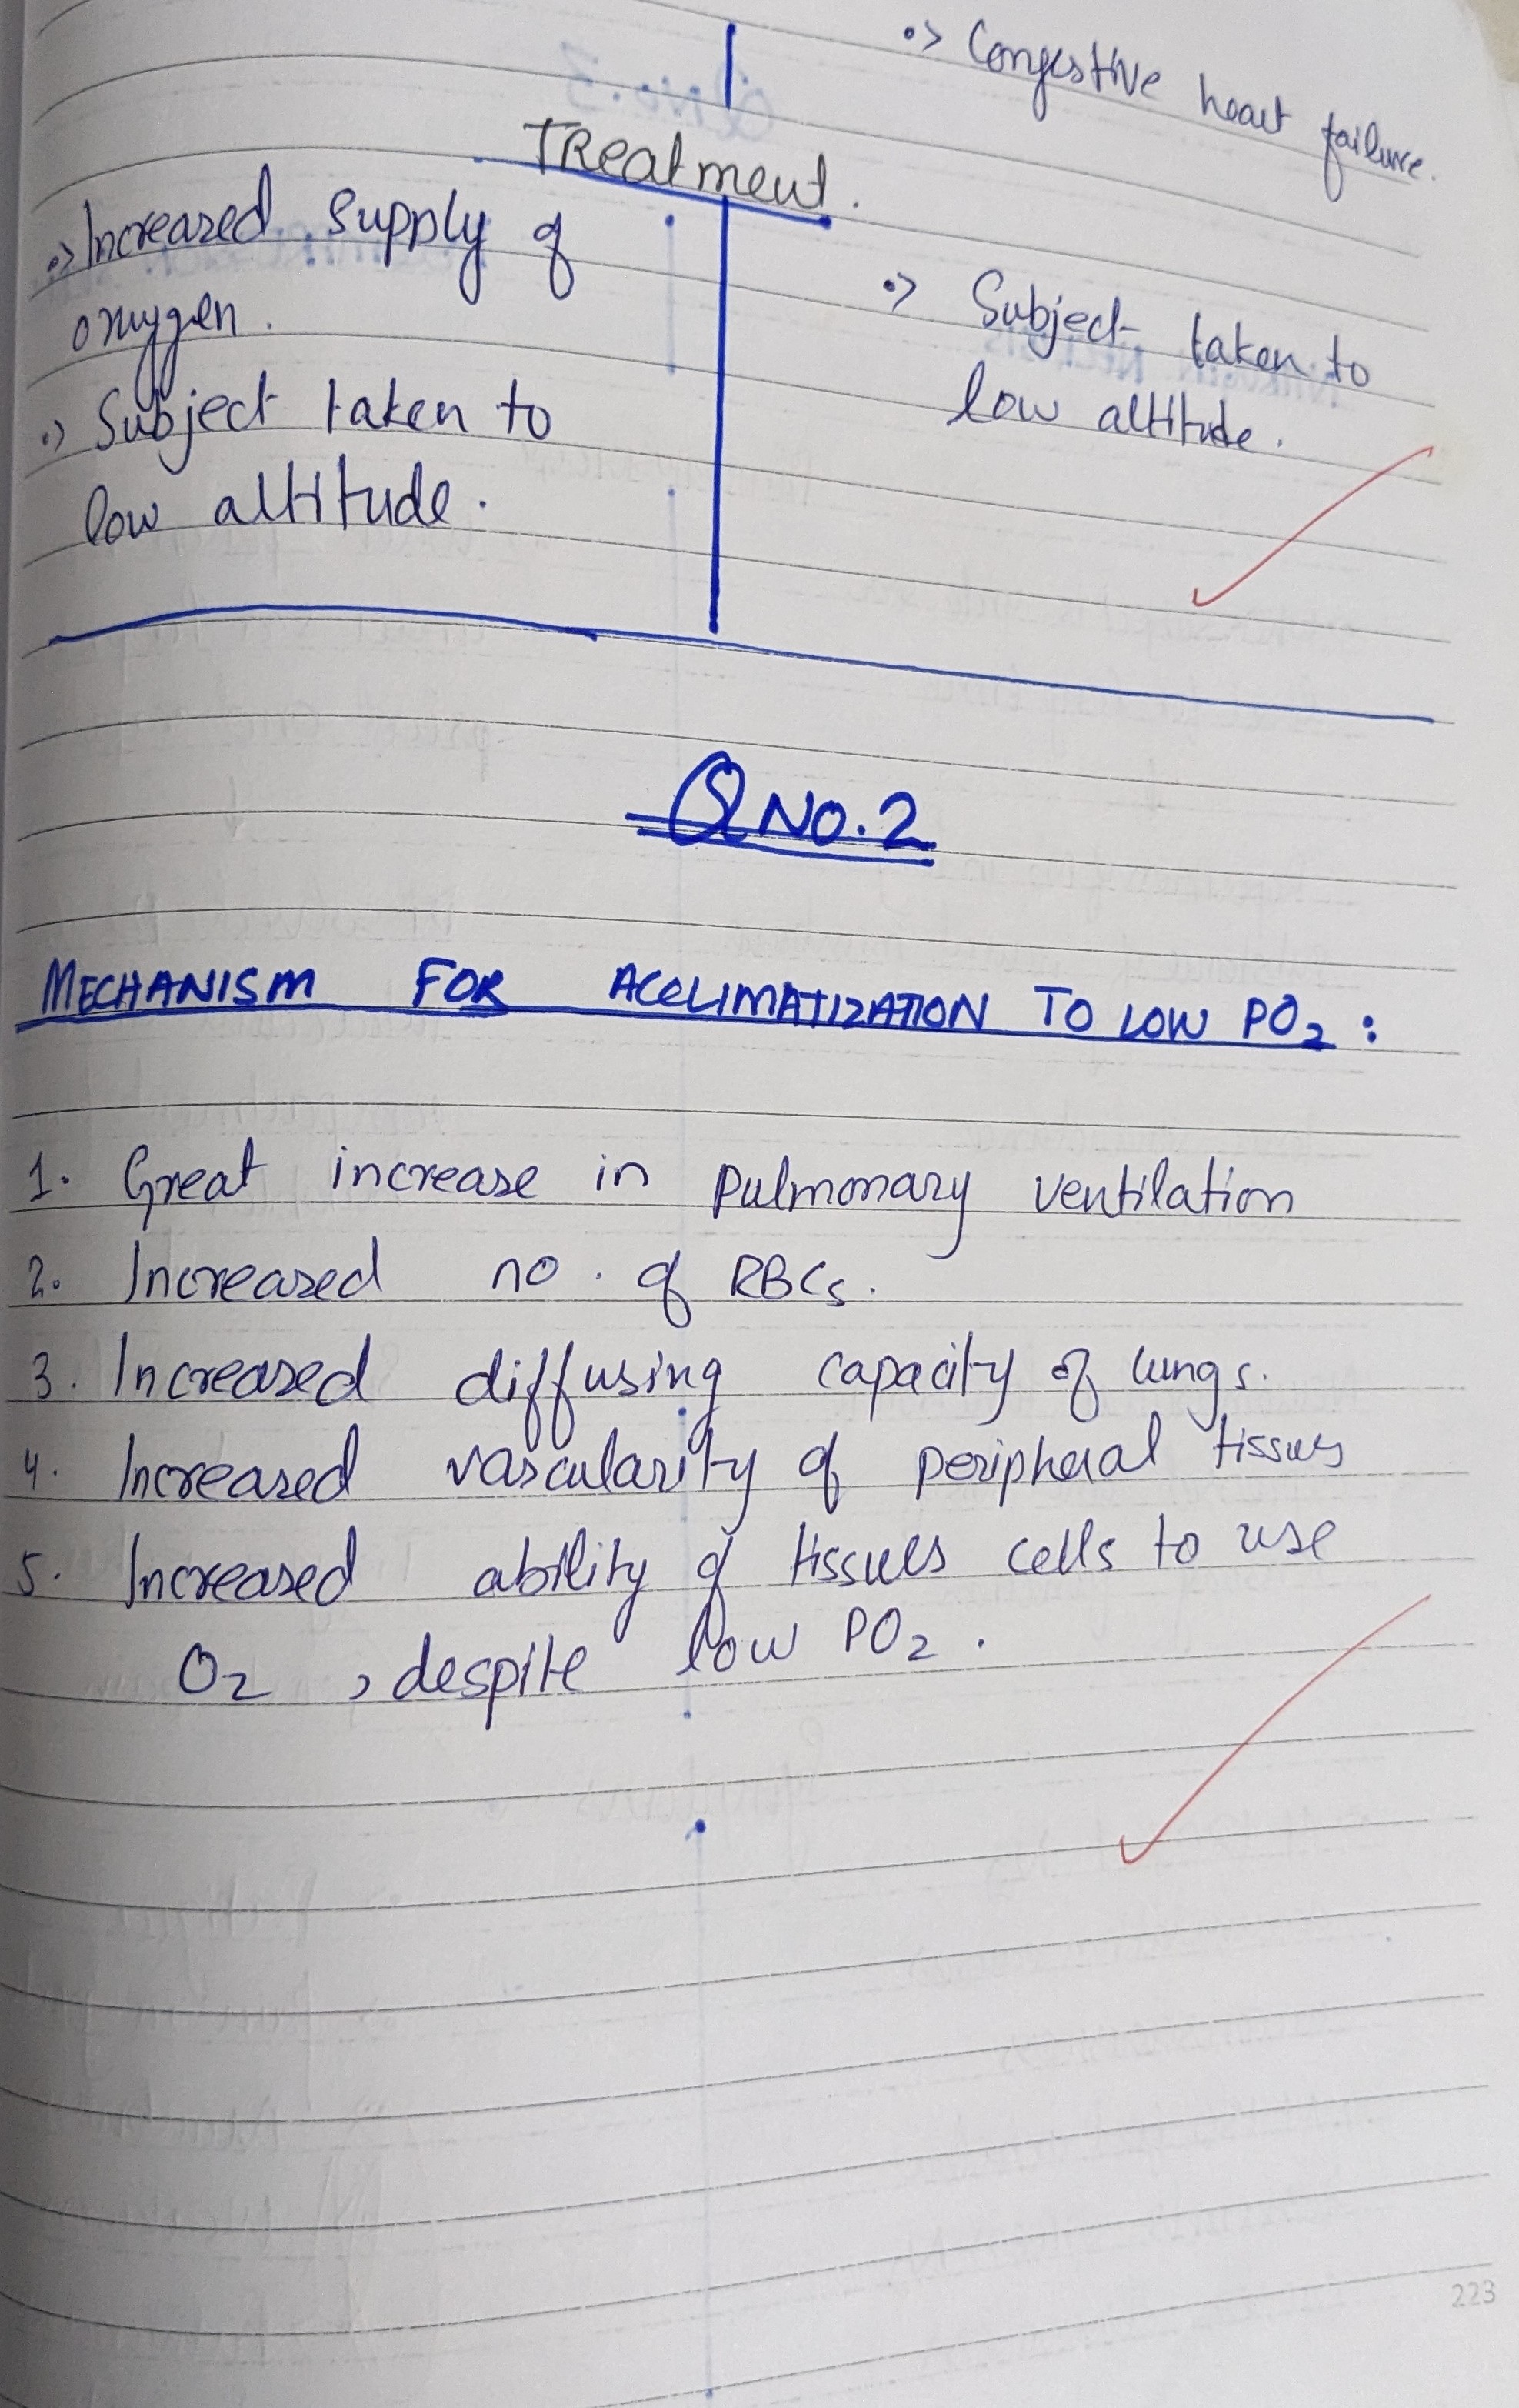 •> Congestive heart failure.
Treatment.
•> Increased supply of
oxygen.
•> Subject taken to
low altitude.
•> Subject taken to
low altitude.
Q NO.2
MECHANISM FOR ACCLIMATIZATION TO LOW PO₂ :
1. Great increase in pulmonary ventilation
2. Increased no. of RBCs.
3. Increased diffusing capacity of lungs.
4. Increased vascularity of peripheral tissues
5. Increased ability of tissues cells to use
O₂, despite low PO₂.
223